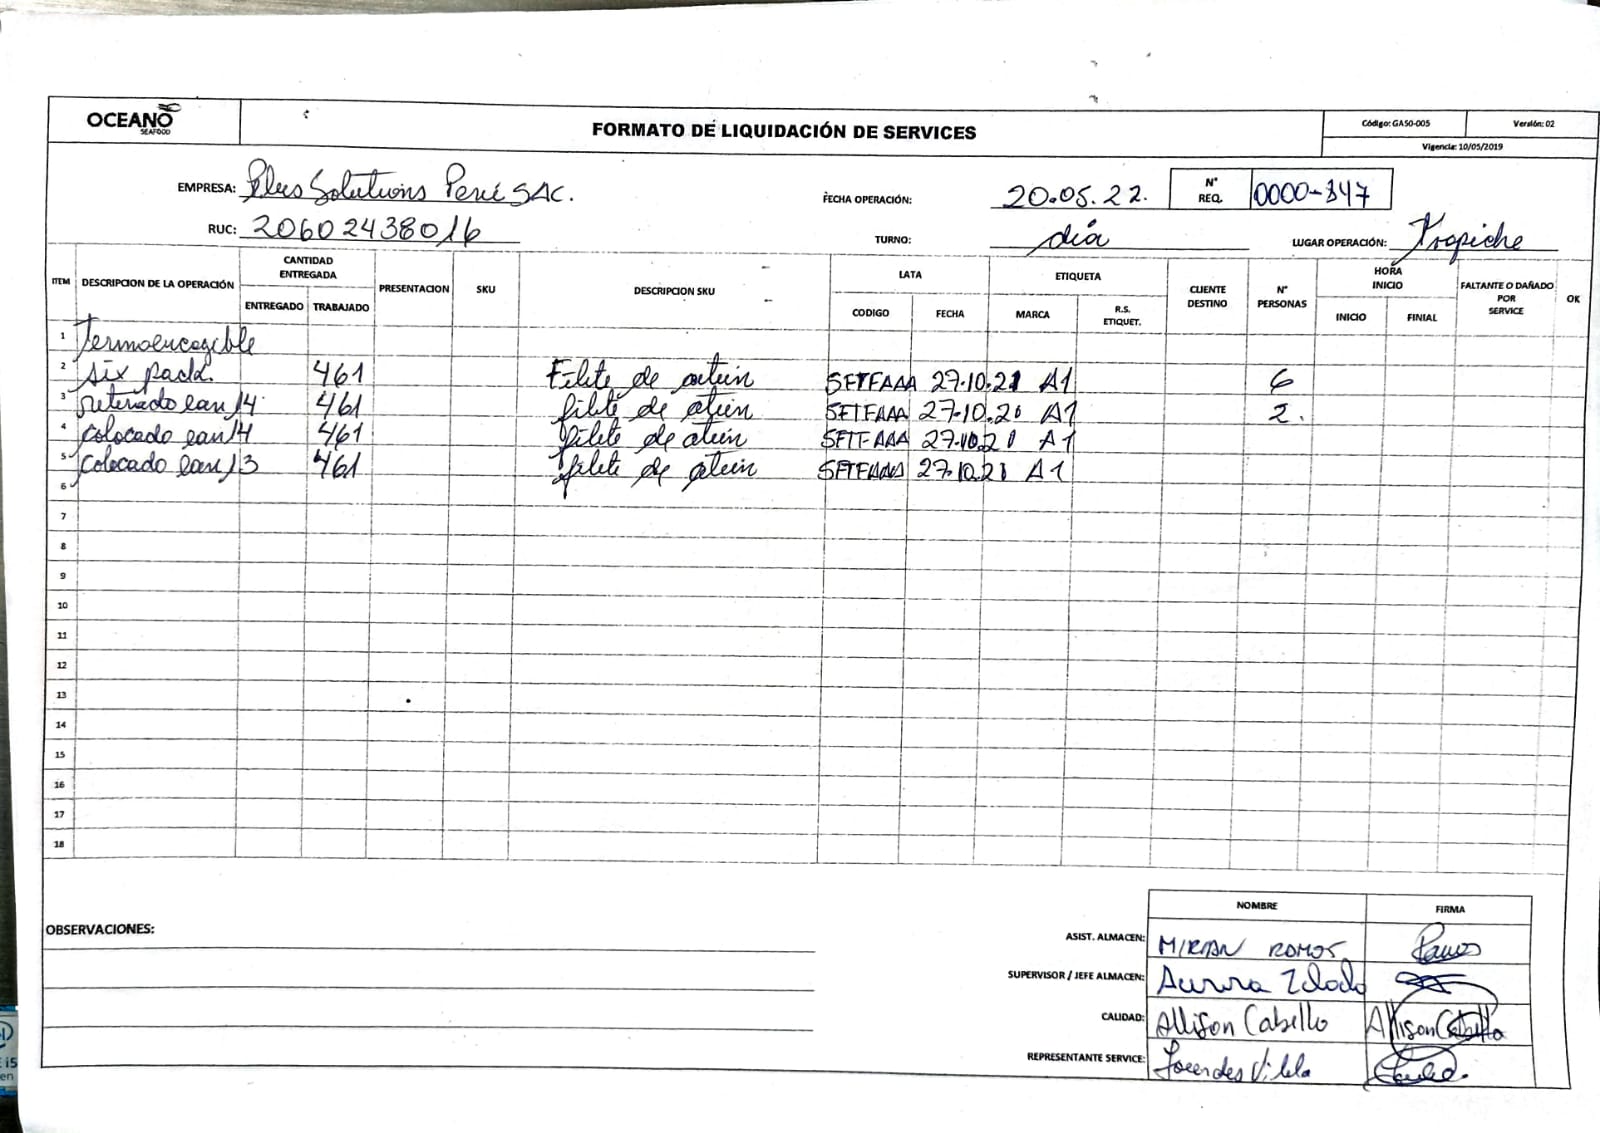 OCEANO
SEAFOOD
FORMATO DE LIQUIDACIÓN DE SERVICES
Código: GA50-005
Versión: 02
Vigencia: 10/05/2019
EMPRESA: Plus Solutions Perú SAC.
FECHA OPERACIÓN: 20.05.22.
N° REQ. 0000-347
RUC: 20602438016
TURNO: día
LUGAR OPERACIÓN: Trapiche
ITEM DESCRIPCION DE LA OPERACIÓN CANTIDAD ENTREGADA PRESENTACION SKU DESCRIPCION SKU LATA ETIQUETA CLIENTE DESTINO N° PERSONAS HORA INICIO FALTANTE O DAÑADO POR SERVICE OK
ENTREGADO TRABAJADO CODIGO FECHA MARCA R.S. ETIQUET. INICIO FINIAL
1 Termoencogible
2 six pack. 461 Filete de atún SETFAAA 27.10.21 A1 6
3 retirado ean 14 461 filete de atún SETFAAA 27.10.21 A1 2.
4 colocado ean 14 461 filete de atún SETFAAA 27.10.21 A1
5 colocado ean 13 461 filete de atún 27.10.21 A1
6
7
8
9
10
11
12
13
14
15
16
17
18
OBSERVACIONES:
NOMBRE FIRMA
ASIST. ALMACEN: MIRIAN RAMOS Ramos
SUPERVISOR / JEFE ALMACEN: Aurora
CALIDAD: Allison Cabillo Allison Cabillo
REPRESENTANTE SERVICE: Lourdes Vilela